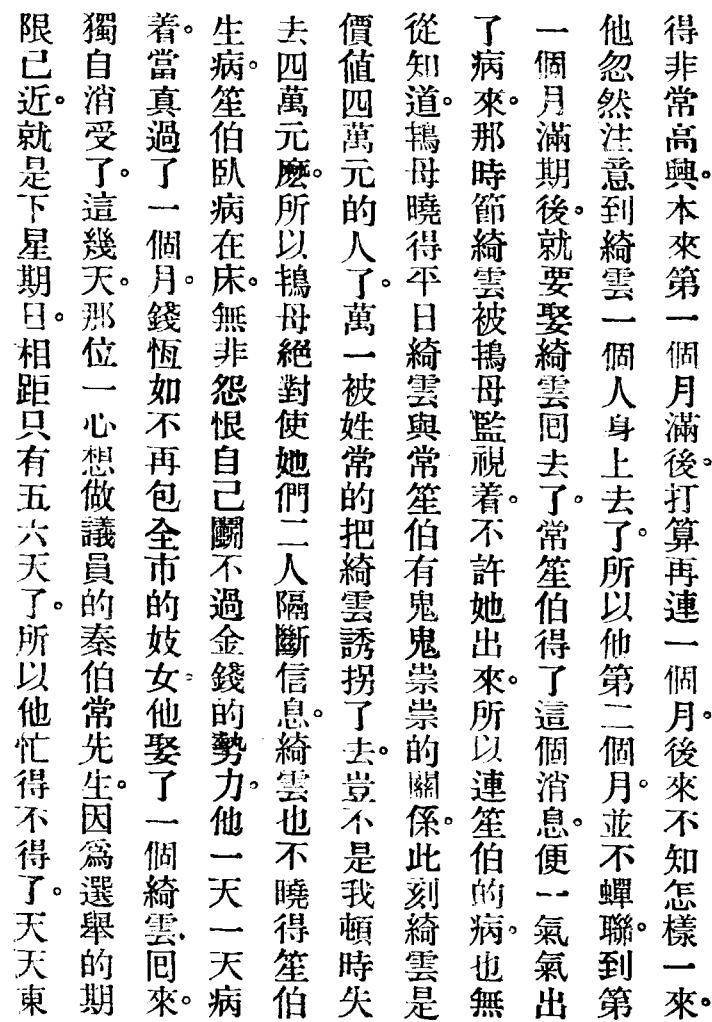 得非常高興。本來第一個月滿後。打算再連一個月。後來不知怎樣一來。
他忽然注意到綺雲一個人身上去了。所以他第二個月。並不蟬聯。到第
一個月滿期後。就要娶綺雲囘去了。常笙伯得了這個消息。便一氣氣出
了病來。那時節綺雲被鴇母監視着。不許她出來。所以連笙伯的病。也無
從知道。鴇母曉得平日綺雲與常笙伯有鬼鬼祟祟的關係。此刻綺雲是
價值四萬元的人了。萬一被姓常的把綺雲誘拐了去。豈不是我頓時失
去四萬元麽。所以鴇母絕對使她們二人隔斷信息。綺雲也不曉得笙伯
生病。笙伯臥病在床。無非怨恨自己鬭不過金錢的勢力。他一天一天病
着。當真過了一個月。錢恆如不再包全市的妓女。他娶了一個綺雲囘來。
獨自消受了。這幾天。那位一心想做議員的秦伯常先生。因爲選舉的期
限已近。就是下星期日。相距只有五六天了。所以他忙得不得了。天天東